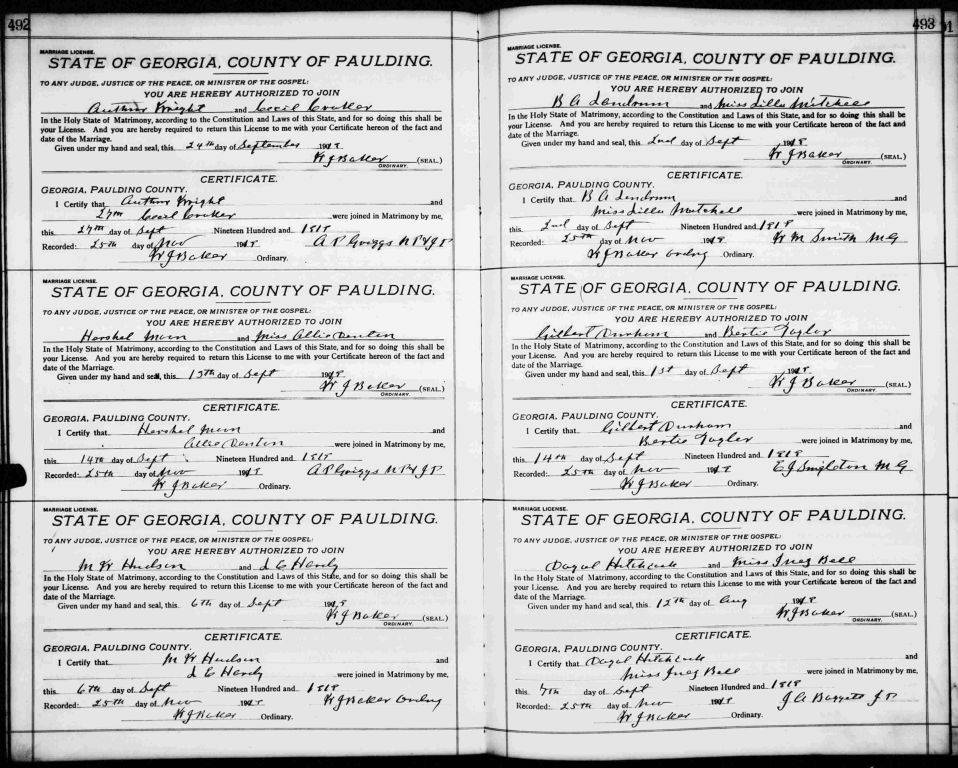 492
MARRIAGE LICENSE.
STATE OF GEORGIA, COUNTY OF PAULDING.
TO ANY JUDGE, JUSTICE OF THE PEACE, OR MINISTER OF THE GOSPEL:
YOU ARE HEREBY AUTHORIZED TO JOIN
Arthur Wright and Cecil Croker
In the Holy State of Matrimony, according to the Constitution and Laws of this State, and for so doing this shall be
your License. And you are hereby required to return this License to me with your Certificate hereon of the fact and
date of the Marriage.
Given under my hand and seal, this 24th day of September 1918
W J Baker (SEAL.)
ORDINARY.
CERTIFICATE.
GEORGIA, PAULDING COUNTY.
I Certify that Arthur Wright and
27th Cecil Croker were joined in Matrimony by me,
this 27th day of Sept Nineteen Hundred and 1918
Recorded: 25th day of Nov 1918 A P Griggs N P & J P
W J Baker Ordinary.
MARRIAGE LICENSE.
STATE OF GEORGIA, COUNTY OF PAULDING.
TO ANY JUDGE, JUSTICE OF THE PEACE, OR MINISTER OF THE GOSPEL:
YOU ARE HEREBY AUTHORIZED TO JOIN
Hershel Moon and Miss Allie Denton
In the Holy State of Matrimony, according to the Constitution and Laws of this State, and for so doing this shall be
your License. And you are hereby required to return this License to me with your Certificate hereon of the fact and
date of the Marriage.
Given under my hand and seal, this 13th day of Sept 1918
W J Baker (SEAL.)
ORDINARY.
CERTIFICATE.
GEORGIA, PAULDING COUNTY.
I Certify that Hershel Moon and
Allie Denton were joined in Matrimony by me,
this 14th day of Sept Nineteen Hundred and 1918
Recorded: 25th day of Nov 1918 A P Griggs N P & J P
W J Baker Ordinary.
MARRIAGE LICENSE.
STATE OF GEORGIA, COUNTY OF PAULDING.
TO ANY JUDGE, JUSTICE OF THE PEACE, OR MINISTER OF THE GOSPEL:
YOU ARE HEREBY AUTHORIZED TO JOIN
M W Hudson and I C Hardy
In the Holy State of Matrimony, according to the Constitution and Laws of this State, and for so doing this shall be
your License. And you are hereby required to return this License to me with your Certificate hereon of the fact and
date of the Marriage.
Given under my hand and seal, this 6th day of Sept 1918
W J Baker (SEAL.)
ORDINARY.
CERTIFICATE.
GEORGIA, PAULDING COUNTY.
I Certify that M W Hudson and
I C Hardy were joined in Matrimony by me,
this 6th day of Sept Nineteen Hundred and 1918
Recorded: 25th day of Nov 1918 W J Baker Ordny
W J Baker Ordinary.
493
MARRIAGE LICENSE.
STATE OF GEORGIA, COUNTY OF PAULDING.
TO ANY JUDGE, JUSTICE OF THE PEACE, OR MINISTER OF THE GOSPEL:
YOU ARE HEREBY AUTHORIZED TO JOIN
B A Lendrum and Miss Lilla Mitchell
In the Holy State of Matrimony, according to the Constitution and Laws of this State, and for so doing this shall be
your License. And you are hereby required to return this License to me with your Certificate hereon of the fact and
date of the Marriage.
Given under my hand and seal, this 2nd day of Sept 1918
W J Baker (SEAL.)
ORDINARY.
CERTIFICATE.
GEORGIA, PAULDING COUNTY.
I Certify that B A Lendrum and
Miss Lilla Mitchell were joined in Matrimony by me,
this 2nd day of Sept Nineteen Hundred and 1918
Recorded: 25th day of Nov 1918 W M Smith M G
W J Baker Ordny Ordinary.
MARRIAGE LICENSE.
STATE OF GEORGIA, COUNTY OF PAULDING.
TO ANY JUDGE, JUSTICE OF THE PEACE, OR MINISTER OF THE GOSPEL:
YOU ARE HEREBY AUTHORIZED TO JOIN
Gilbert Durham and Bertie Taylor
In the Holy State of Matrimony, according to the Constitution and Laws of this State, and for so doing this shall be
your License. And you are hereby required to return this License to me with your Certificate hereon of the fact and
date of the Marriage.
Given under my hand and seal, this 1st day of Sept 1918
W J Baker (SEAL.)
ORDINARY.
CERTIFICATE.
GEORGIA, PAULDING COUNTY.
I Certify that Gilbert Durham and
Bertie Taylor were joined in Matrimony by me,
this 14th day of Sept Nineteen Hundred and 1918
Recorded: 25th day of Nov 1918 E J Singleton M G
W J Baker Ordinary.
MARRIAGE LICENSE.
STATE OF GEORGIA, COUNTY OF PAULDING.
TO ANY JUDGE, JUSTICE OF THE PEACE, OR MINISTER OF THE GOSPEL:
YOU ARE HEREBY AUTHORIZED TO JOIN
Doyal Hitchcock and Miss Inez Bell
In the Holy State of Matrimony, according to the Constitution and Laws of this State, and for so doing this shall be
your License. And you are hereby required to return this License to me with your Certificate hereon of the fact and
date of the Marriage.
Given under my hand and seal, this 12th day of Aug 1918
W J Baker (SEAL.)
ORDINARY.
CERTIFICATE.
GEORGIA, PAULDING COUNTY.
I Certify that Doyal Hitchcock and
Miss Inez Bell were joined in Matrimony by me,
this 7th day of Sept Nineteen Hundred and 1918
Recorded: 25th day of Nov 1918 J A Barrett J P
W J Baker Ordinary.